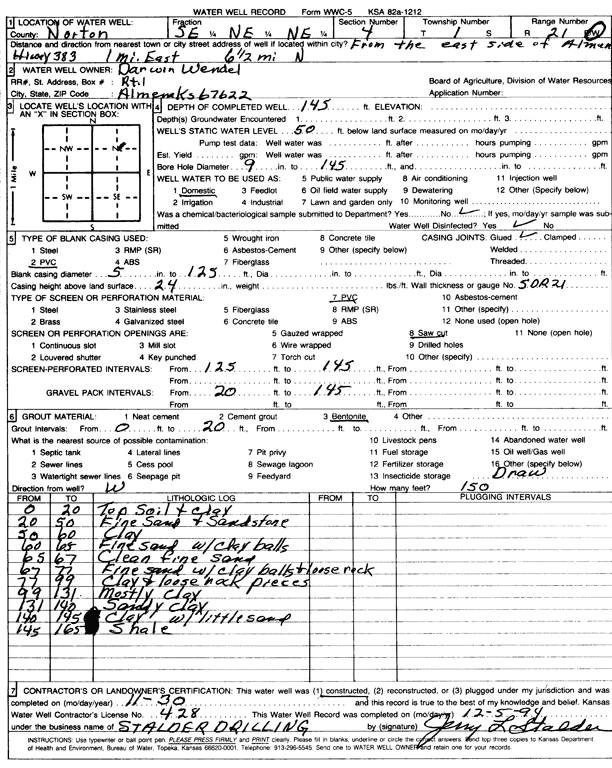 WATER WELL RECORD Form WWC-5 KSA 82a-1212
1 LOCATION OF WATER WELL: Fraction Section Number Township Number Range Number
County: Norton SE ¼ NE ¼ NE ¼ 4 T 1 S R 21 W
Distance and direction from nearest town or city street address of well if located within city? From the east side of Almena
Hiway 383 1 mi. East 6 1/2 mi N
2 WATER WELL OWNER: Darwin Wendel
RR#, St. Address, Box # : Rt. 1 Board of Agriculture, Division of Water Resources
City, State, ZIP Code : Almena ks 67622 Application Number:
3 LOCATE WELL'S LOCATION WITH AN "X" IN SECTION BOX:
N
NW NE
W E
SW SE
S
1 Mile
4 DEPTH OF COMPLETED WELL 145 ft. ELEVATION:
Depth(s) Groundwater Encountered 1. ft. 2. ft. 3. ft.
WELL'S STATIC WATER LEVEL 50 ft. below land surface measured on mo/day/yr
Pump test data: Well water was ft. after hours pumping gpm
Est. Yield gpm: Well water was ft. after hours pumping gpm
Bore Hole Diameter 9 in. to 145 ft., and in. to ft.
WELL WATER TO BE USED AS: 5 Public water supply 8 Air conditioning 11 Injection well
1 Domestic 3 Feedlot 6 Oil field water supply 9 Dewatering 12 Other (Specify below)
2 Irrigation 4 Industrial 7 Lawn and garden only 10 Monitoring well
Was a chemical/bacteriological sample submitted to Department? Yes No ✓ ; If yes, mo/day/yr sample was submitted Water Well Disinfected? Yes ✓ No
5 TYPE OF BLANK CASING USED: 5 Wrought iron 8 Concrete tile CASING JOINTS: Glued ✓ Clamped
1 Steel 3 RMP (SR) 6 Asbestos-Cement 9 Other (specify below) Welded
2 PVC 4 ABS 7 Fiberglass Threaded
Blank casing diameter 5 in. to 125 ft., Dia in. to ft., Dia in. to ft.
Casing height above land surface 24 in., weight lbs./ft. Wall thickness or gauge No. SDR 21
TYPE OF SCREEN OR PERFORATION MATERIAL: 7 PVC 10 Asbestos-cement
1 Steel 3 Stainless steel 5 Fiberglass 8 RMP (SR) 11 Other (specify)
2 Brass 4 Galvanized steel 6 Concrete tile 9 ABS 12 None used (open hole)
SCREEN OR PERFORATION OPENINGS ARE: 5 Gauzed wrapped 8 Saw cut 11 None (open hole)
1 Continuous slot 3 Mill slot 6 Wire wrapped 9 Drilled holes
2 Louvered shutter 4 Key punched 7 Torch cut 10 Other (specify)
SCREEN-PERFORATED INTERVALS: From 125 ft. to 145 ft., From ft. to ft.
From ft. to ft., From ft. to ft.
GRAVEL PACK INTERVALS: From 20 ft. to 145 ft., From ft. to ft.
From ft. to ft., From ft. to ft.
6 GROUT MATERIAL: 1 Neat cement 2 Cement grout 3 Bentonite 4 Other
Grout Intervals: From 0 ft. to 20 ft., From ft. to ft., From ft. to ft.
What is the nearest source of possible contamination: 10 Livestock pens 14 Abandoned water well
1 Septic tank 4 Lateral lines 7 Pit privy 11 Fuel storage 15 Oil well/Gas well
2 Sewer lines 5 Cess pool 8 Sewage lagoon 12 Fertilizer storage 16 Other (specify below)
3 Watertight sewer lines 6 Seepage pit 9 Feedyard 13 Insecticide storage Draw
Direction from well? W How many feet? 150
FROM TO LITHOLOGIC LOG FROM TO PLUGGING INTERVALS
0 20 Top Soil & clay
20 50 Fine Sand & Sandstone
50 60 Clay
60 65 Fine sand w/ clay balls
65 67 Clean fine sand
67 77 Fine sand w/ clay balls & loose rock
77 99 Clay & loose rock pieces
99 131 Mostly clay
131 140 Sandy clay
140 145 Clay w/ little sand
145 165 Shale
7 CONTRACTOR'S OR LANDOWNER'S CERTIFICATION: This water well was (1) constructed, (2) reconstructed, or (3) plugged under my jurisdiction and was
completed on (mo/day/year) 11-30 and this record is true to the best of my knowledge and belief. Kansas
Water Well Contractor's License No. 428 This Water Well Record was completed on (mo/day/yr) 12-5-94
under the business name of STALDER DRILLING by (signature) Jerry L Stalder
INSTRUCTIONS: Use typewriter or ball point pen. PLEASE PRESS FIRMLY and PRINT clearly. Please fill in blanks, underline or circle the correct answers. Send top three copies to Kansas Department
of Health and Environment, Bureau of Water, Topeka, Kansas 66620-0001. Telephone: 913-296-5545. Send one to WATER WELL OWNER and retain one for your records.